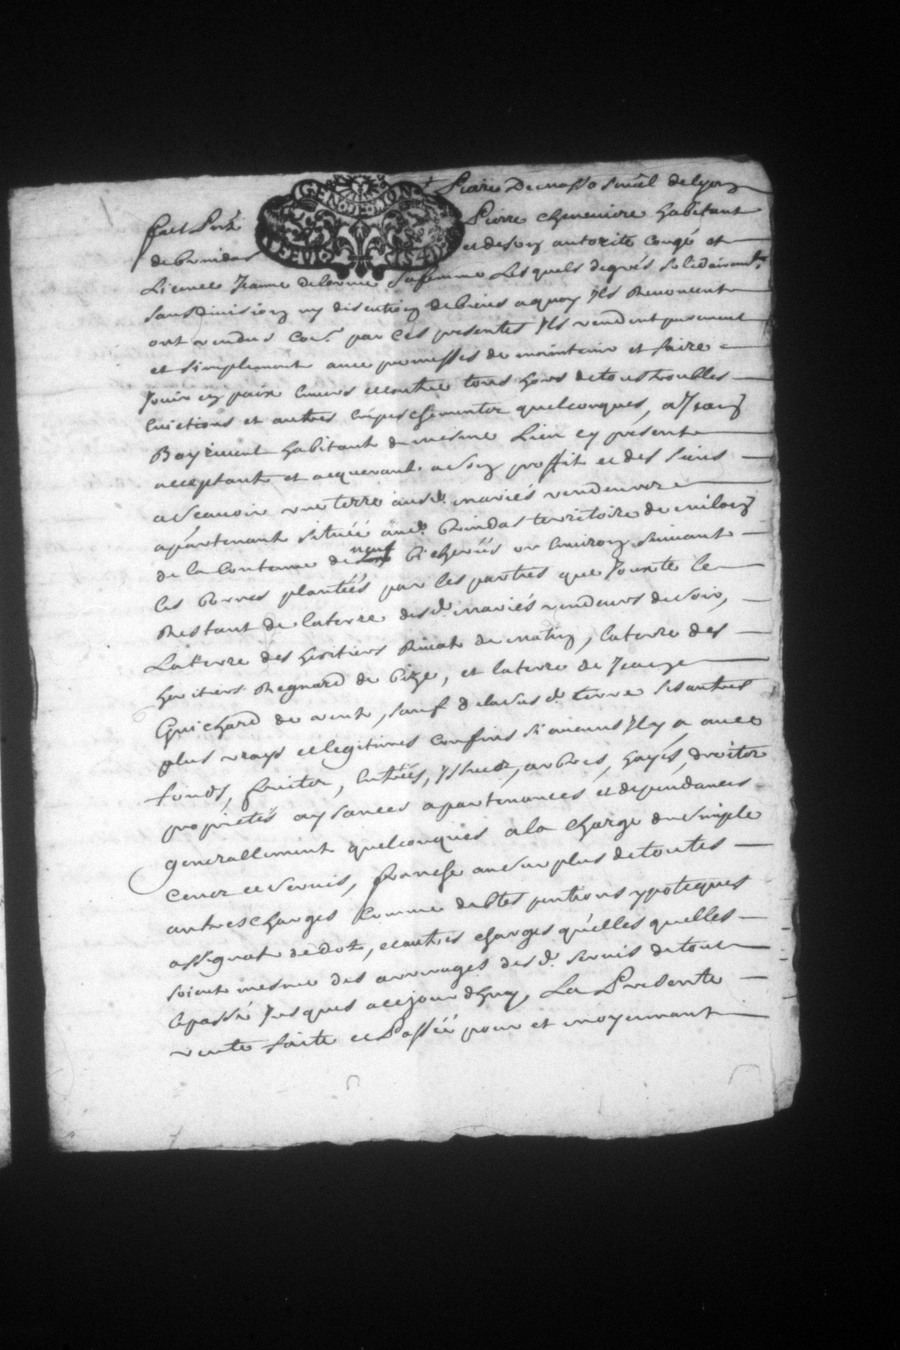 GEN. DE LION
Pierre
fut P. Pierre cheneviere habitant
de brindas et de son autorite congé et
Licence Jeanne delorme sa femme Lesquels de grés solidairement
sans division ny discution de biens a quoy ils Renoncent
ont vendus par ces presentes Ils vendent purement
et simplement avec promesses de maintenir et faire
Jouir en paix envers et contre tous hors de tous troubles
evictions et autres empeschements quelconques, a Jean
habitant du mesme Lieu cy présent
acceptant et acquerant a son proffit et des siens
a Scavoir une terre aux d. mariés vendeurs
apartenant située aud. brindas territoire de
de la Contenue de neuf bicherées ou environ suivant
les bornes plantées par les parties que Jouxte le
Restant de la terre des d. mariés vendeurs de soir,
La terre des heritiers de matin, la terre des
heritiers Regnard de bize, et la terre de Jean
Guichard de vent, sauf de la susd. terre ses autres
plus vrays et legitimes confins si aucuns Il y a avec
fonds, fruitz, entrées, yssues, arbres, hayes, droitz
proprietés aysances apartenances et dependances
generallement quelconques a la charge du simple
cens et servis, franche au surplus de toutes
autres charges comme debtes pentions ypoteques
assignat de dot, et autres charges qu'elles quelles
soient mesme des arrerages des d. servis de tout
le passé Jusques a ce jour d'huy La Presente
vente faite et Passée pour et moyennant